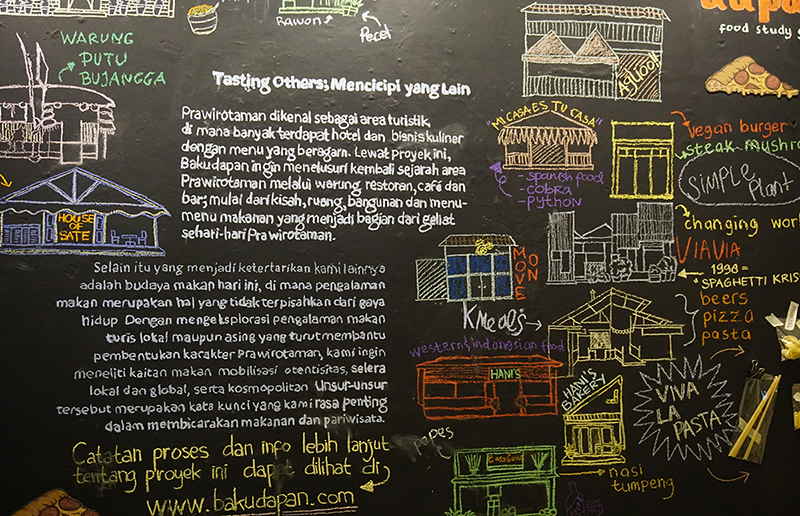 Rawon
Pecel
food study g
WARUNG
PUTU
BUJANGGA
HOUSE
OF
SATE
Tasting Others; Mencicipi yang Lain
Prawirotaman dikenal sebagai area turistik,
di mana banyak terdapat hotel dan bisnis kuliner
dengan menu yang beragam. Lewat proyek ini,
Bakudapan ingin menelusuri kembali sejarah area
Prawirotaman melalui warung, restoran, café dan
bar; mulai dari kisah, ruang, bangunan dan menu-
menu makanan yang menjadi bagian dari geliat
sehari-hari Prawirotaman.
Selain itu yang menjadi ketertarikan kami lainnya
adalah budaya makan hari ini, di mana pengalaman
makan merupakan hal yang tidak terpisahkan dari gaya
hidup. Dengan mengeksplorasi pengalaman makan
turis lokal maupun asing yang turut membantu
pembentukan karakter Prawirotaman, kami ingin
meneliti kaitan makan, mobilisasi, otentisitas, selera
lokal dan global, serta kosmopolitan. Unsur-unsur
tersebut merupakan kata kunci yang kami rasa penting
dalam membicarakan makanan dan pariwisata.
Catatan proses dan info lebih lanjut
tentang proyek ini dapat dilihat di
www.bakudapan.com
"MI CASA ES TU CASA"
- spanish food
- cobra
- PYTHON
vegan burger
steak mushro
SIMPLE
PLANT
changing wor
VIAVIA
1996=
"SPAGHETTI KRIS
beers
pizza
pasta
MOVE
ON
K Meals
western & indonesian food
HANI'S
HANI'S
BAKERY
VIVA
LA
PASTA
pepes
nasi
tumpeng